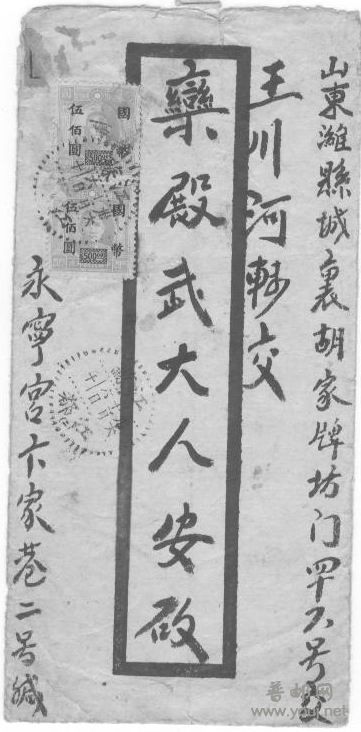 山東濰縣城裏胡家牌坊门四十六号交
王川河轉交
欒殿武大人安啟
永寧宮卞家巷二号緘
國幣
伍佰圓
500
國幣
伍佰圓
500
普邮网
www.youj.net